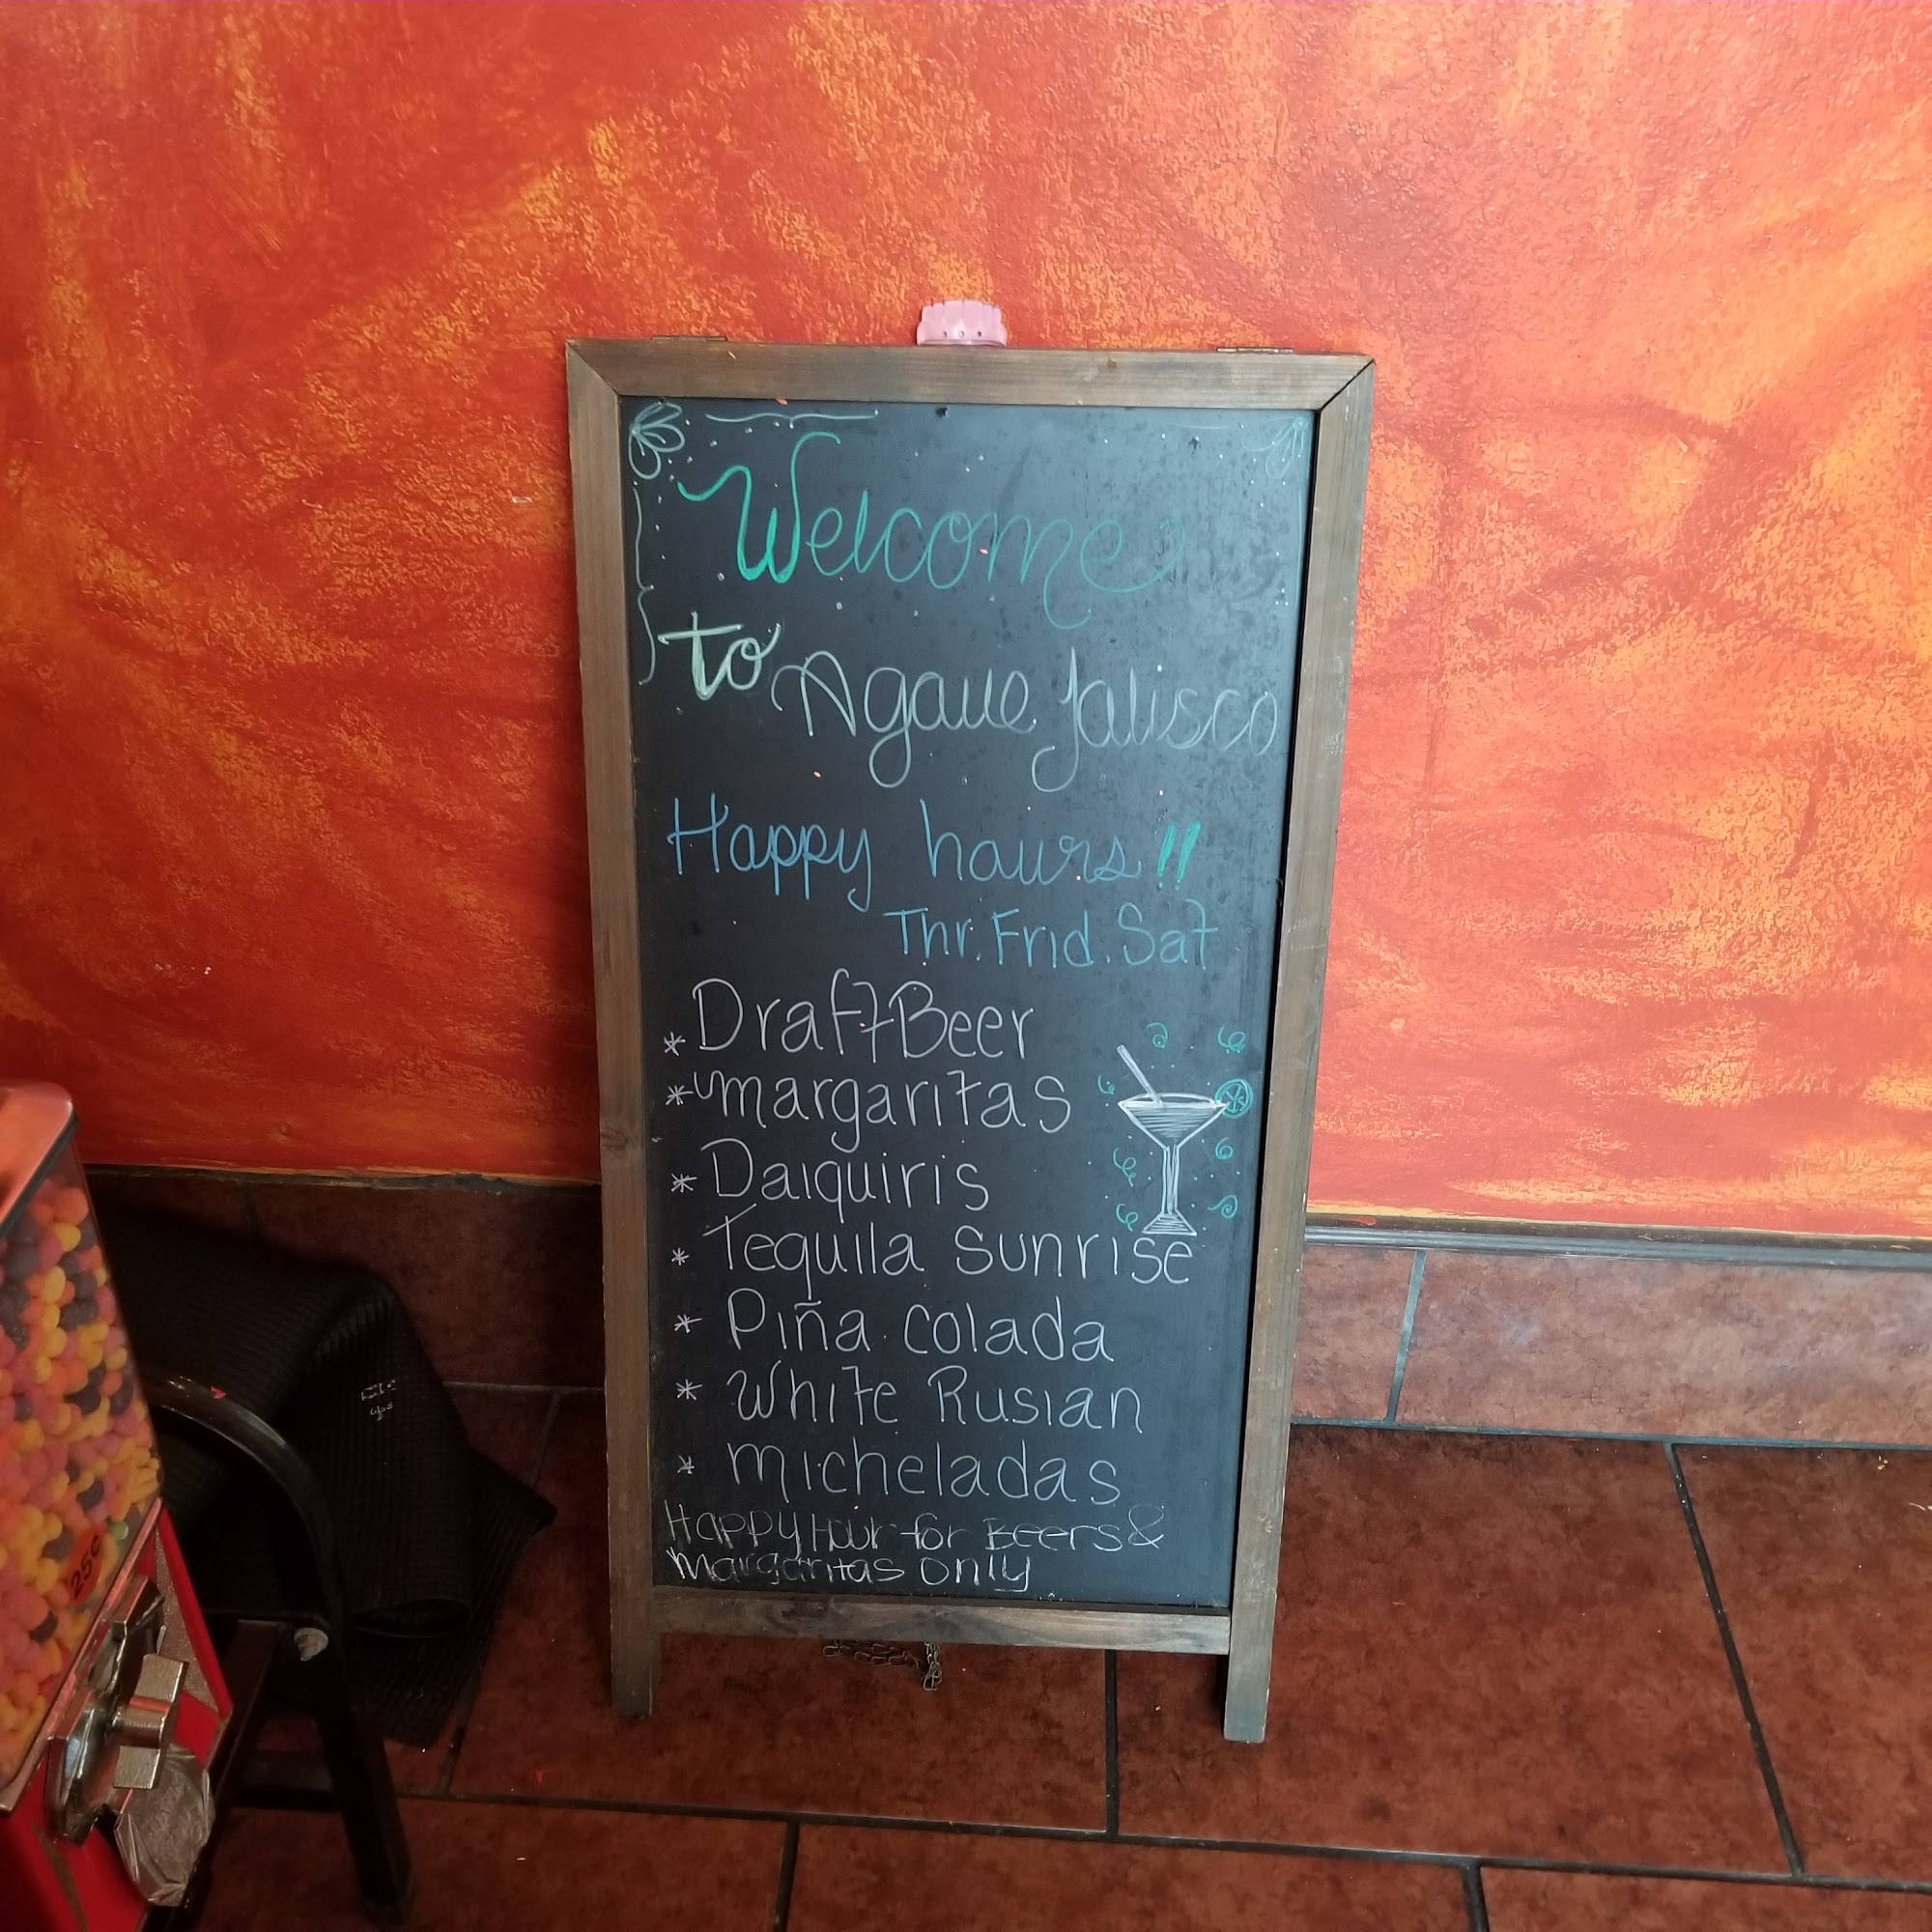 Welcome
to Agave Jalisco
Happy hours!!
Thr. Frid. Sat
* Draft Beer
* margaritas
* Daiquiris
* Tequila Sunrise
* Piña colada
* White Rusian
* micheladas
Happy Hour for Beers &
Margaritas only
25¢